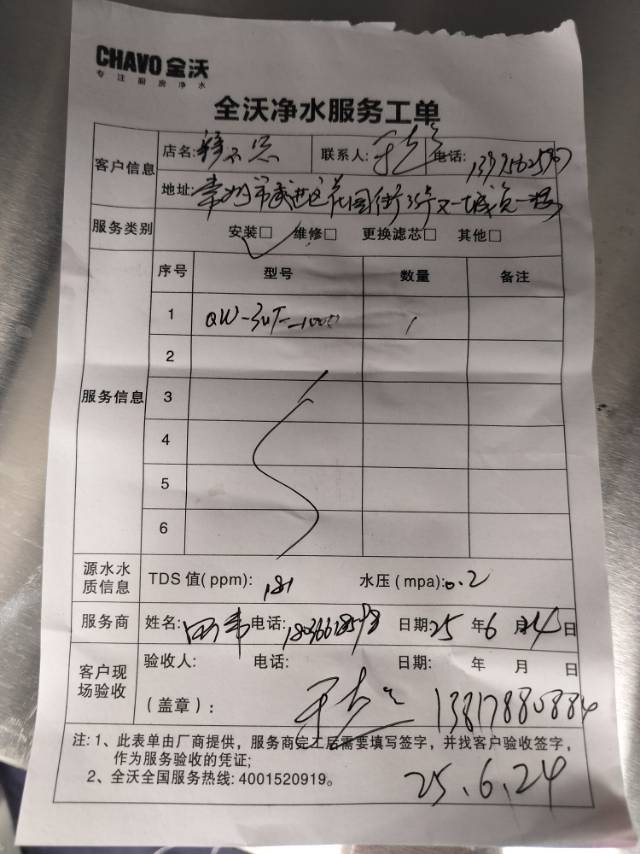 CHAVO 全沃
专注厨房净水
全沃净水服务工单
客户信息
店名: 联系人: 电话:
地址: 常州市武进区花园街
服务类别 安装□ 维修□ 更换滤芯□ 其他□
服务信息
序号 型号 数量 备注
1 QW-3UT-1000 1
2
3
4
5
6
源水水质信息 TDS 值(ppm): 181 水压(mpa): 0.2
服务商 姓名: 电话: 日期: 25 年 6 月 日
客户现场验收
验收人: 电话: 日期: 年 月 日
(盖章): 13817880884
注: 1、此表单由厂商提供，服务商完工后需要填写签字，并找客户验收签字，
作为服务验收的凭证;
2、全沃全国服务热线: 4001520919。
25.6.24